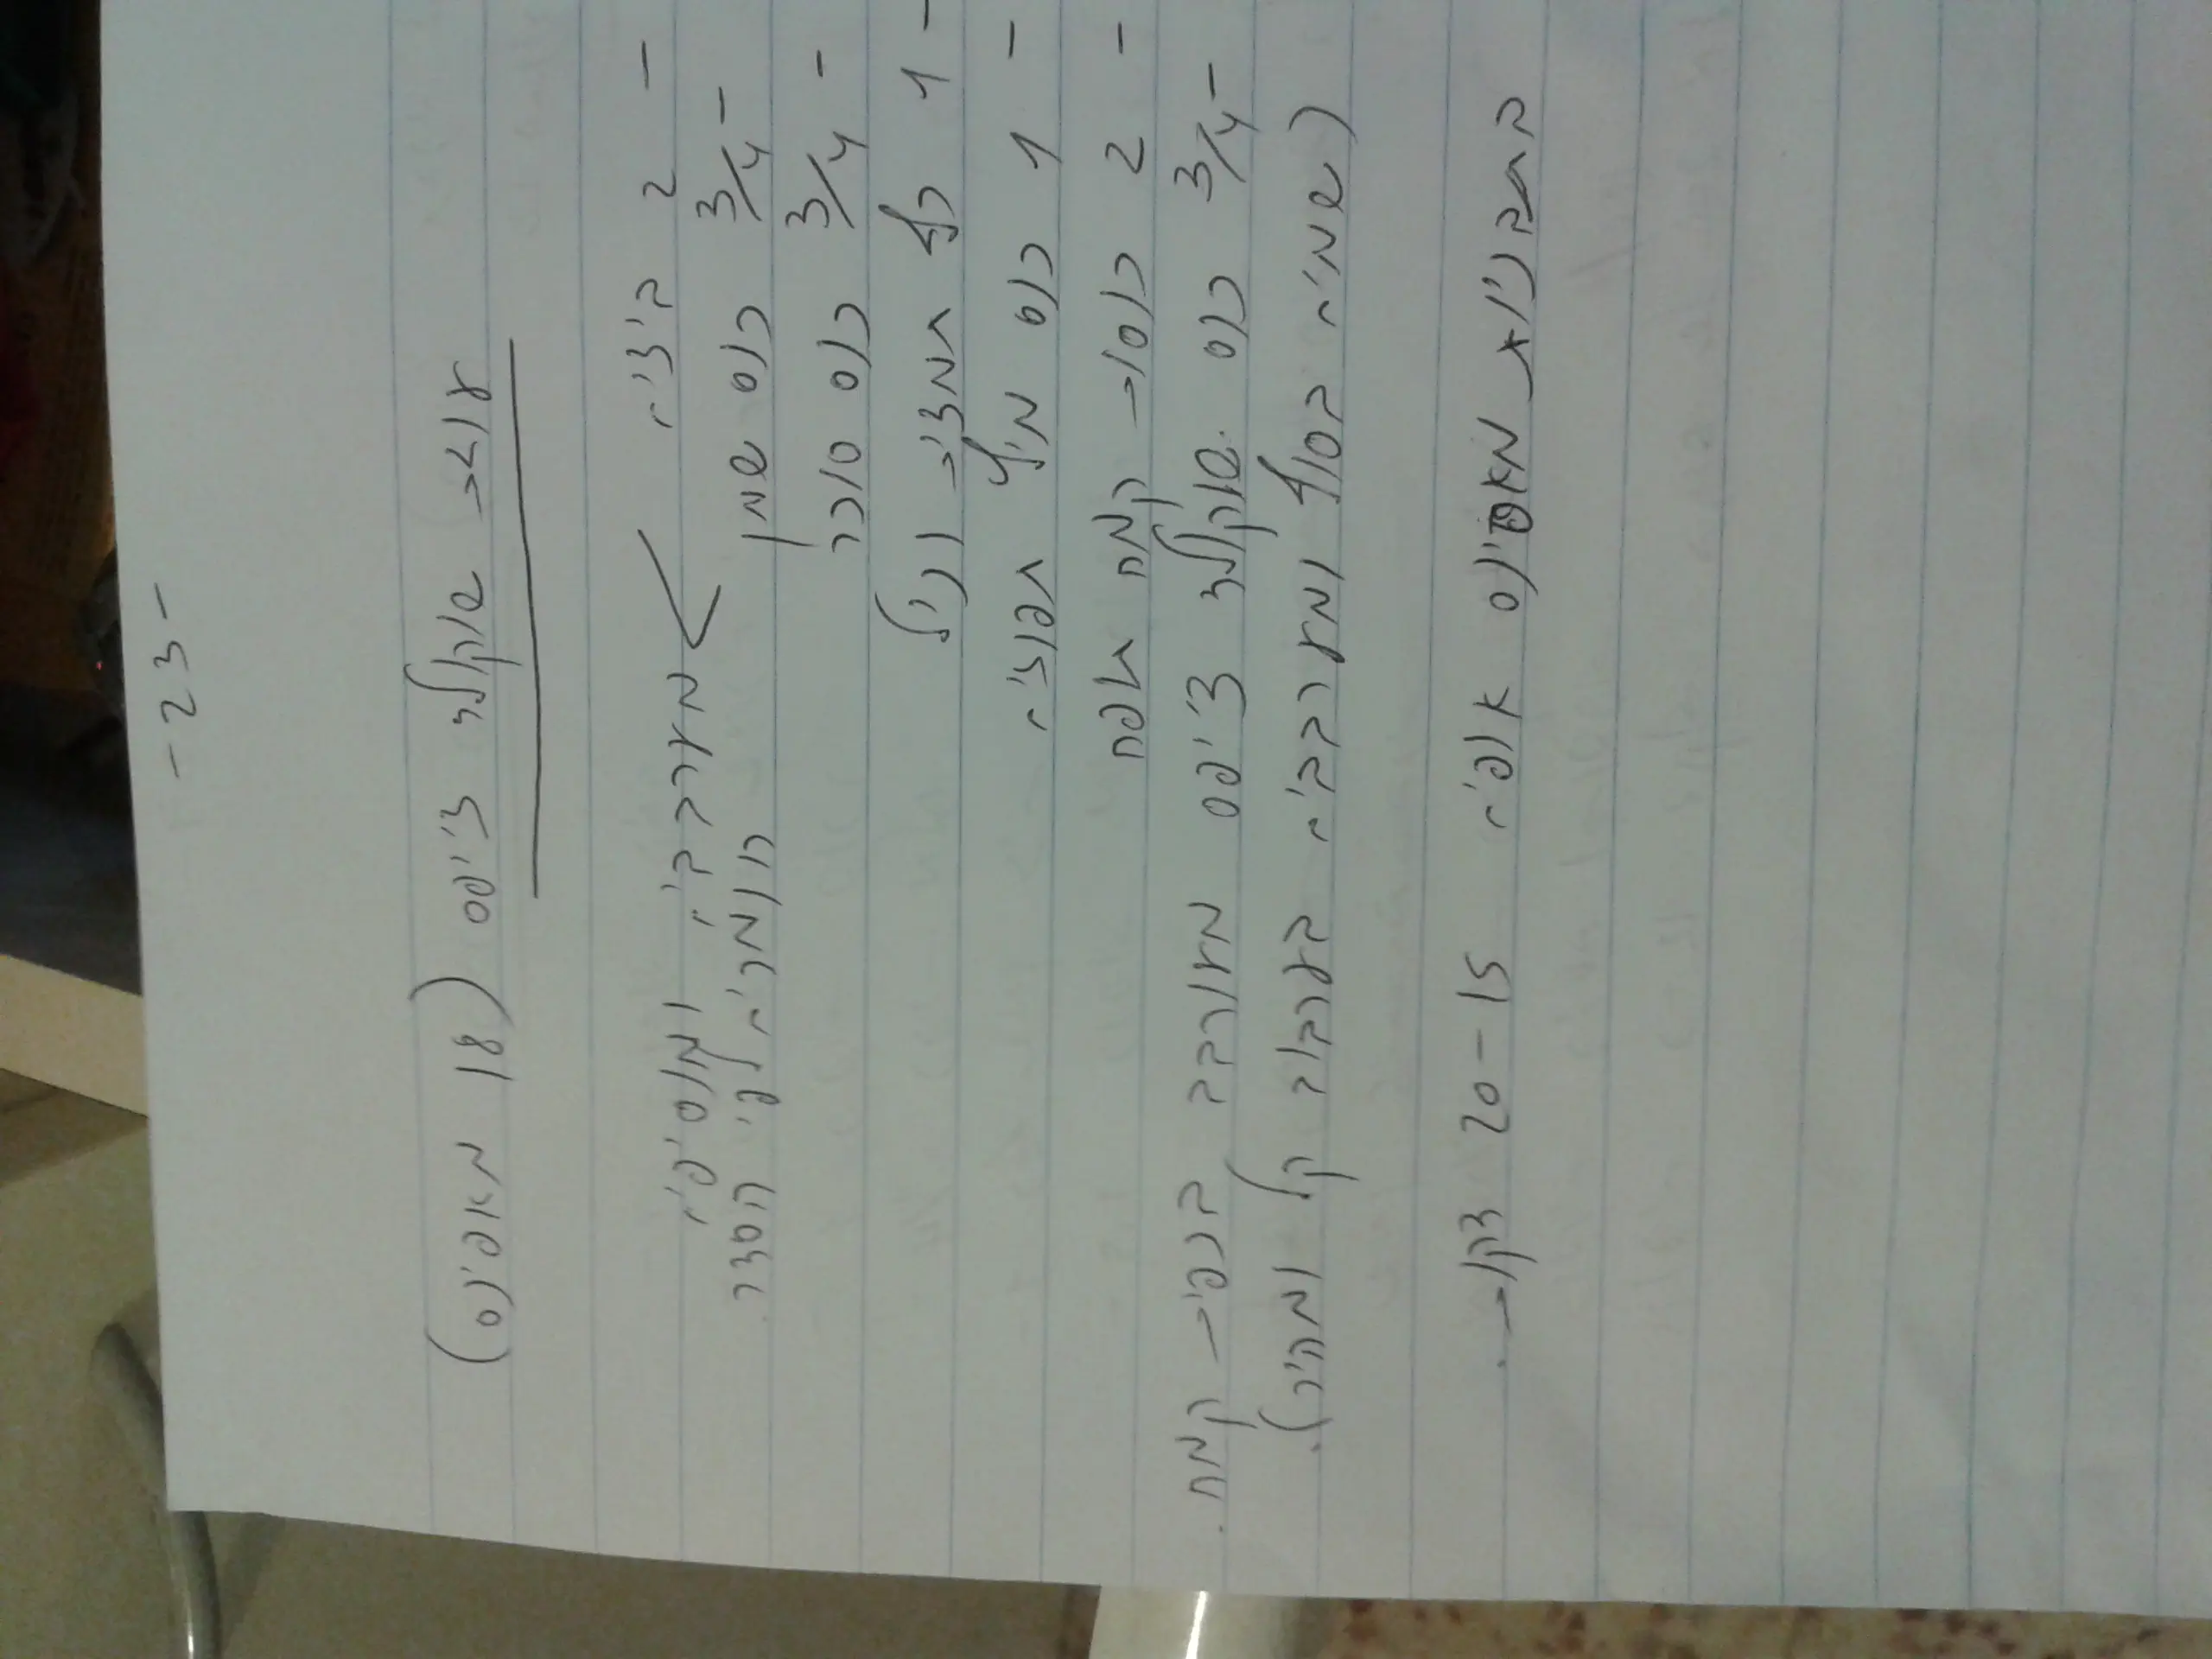 -23-
עוגת שוקולד צ'יפס (18 מאפינס)
- 2 ביצים
- 3/4 כוס שמן > מערבבים ומוסיפים
- 3/4 כוס סוכר החומרים לפי הסדר.
- 1 כף תמצית וניל
- 1 כוס מיץ תפוזים
- 2 כוסות קמח תופח
- 3/4 כוס שוקולד צ'יפס מעורבב בכפית קמח.
(שמים בסוף ומערבבים בערבוב קל ומהיר).
בתבניות מאפינס אופים 15-20 דקות.